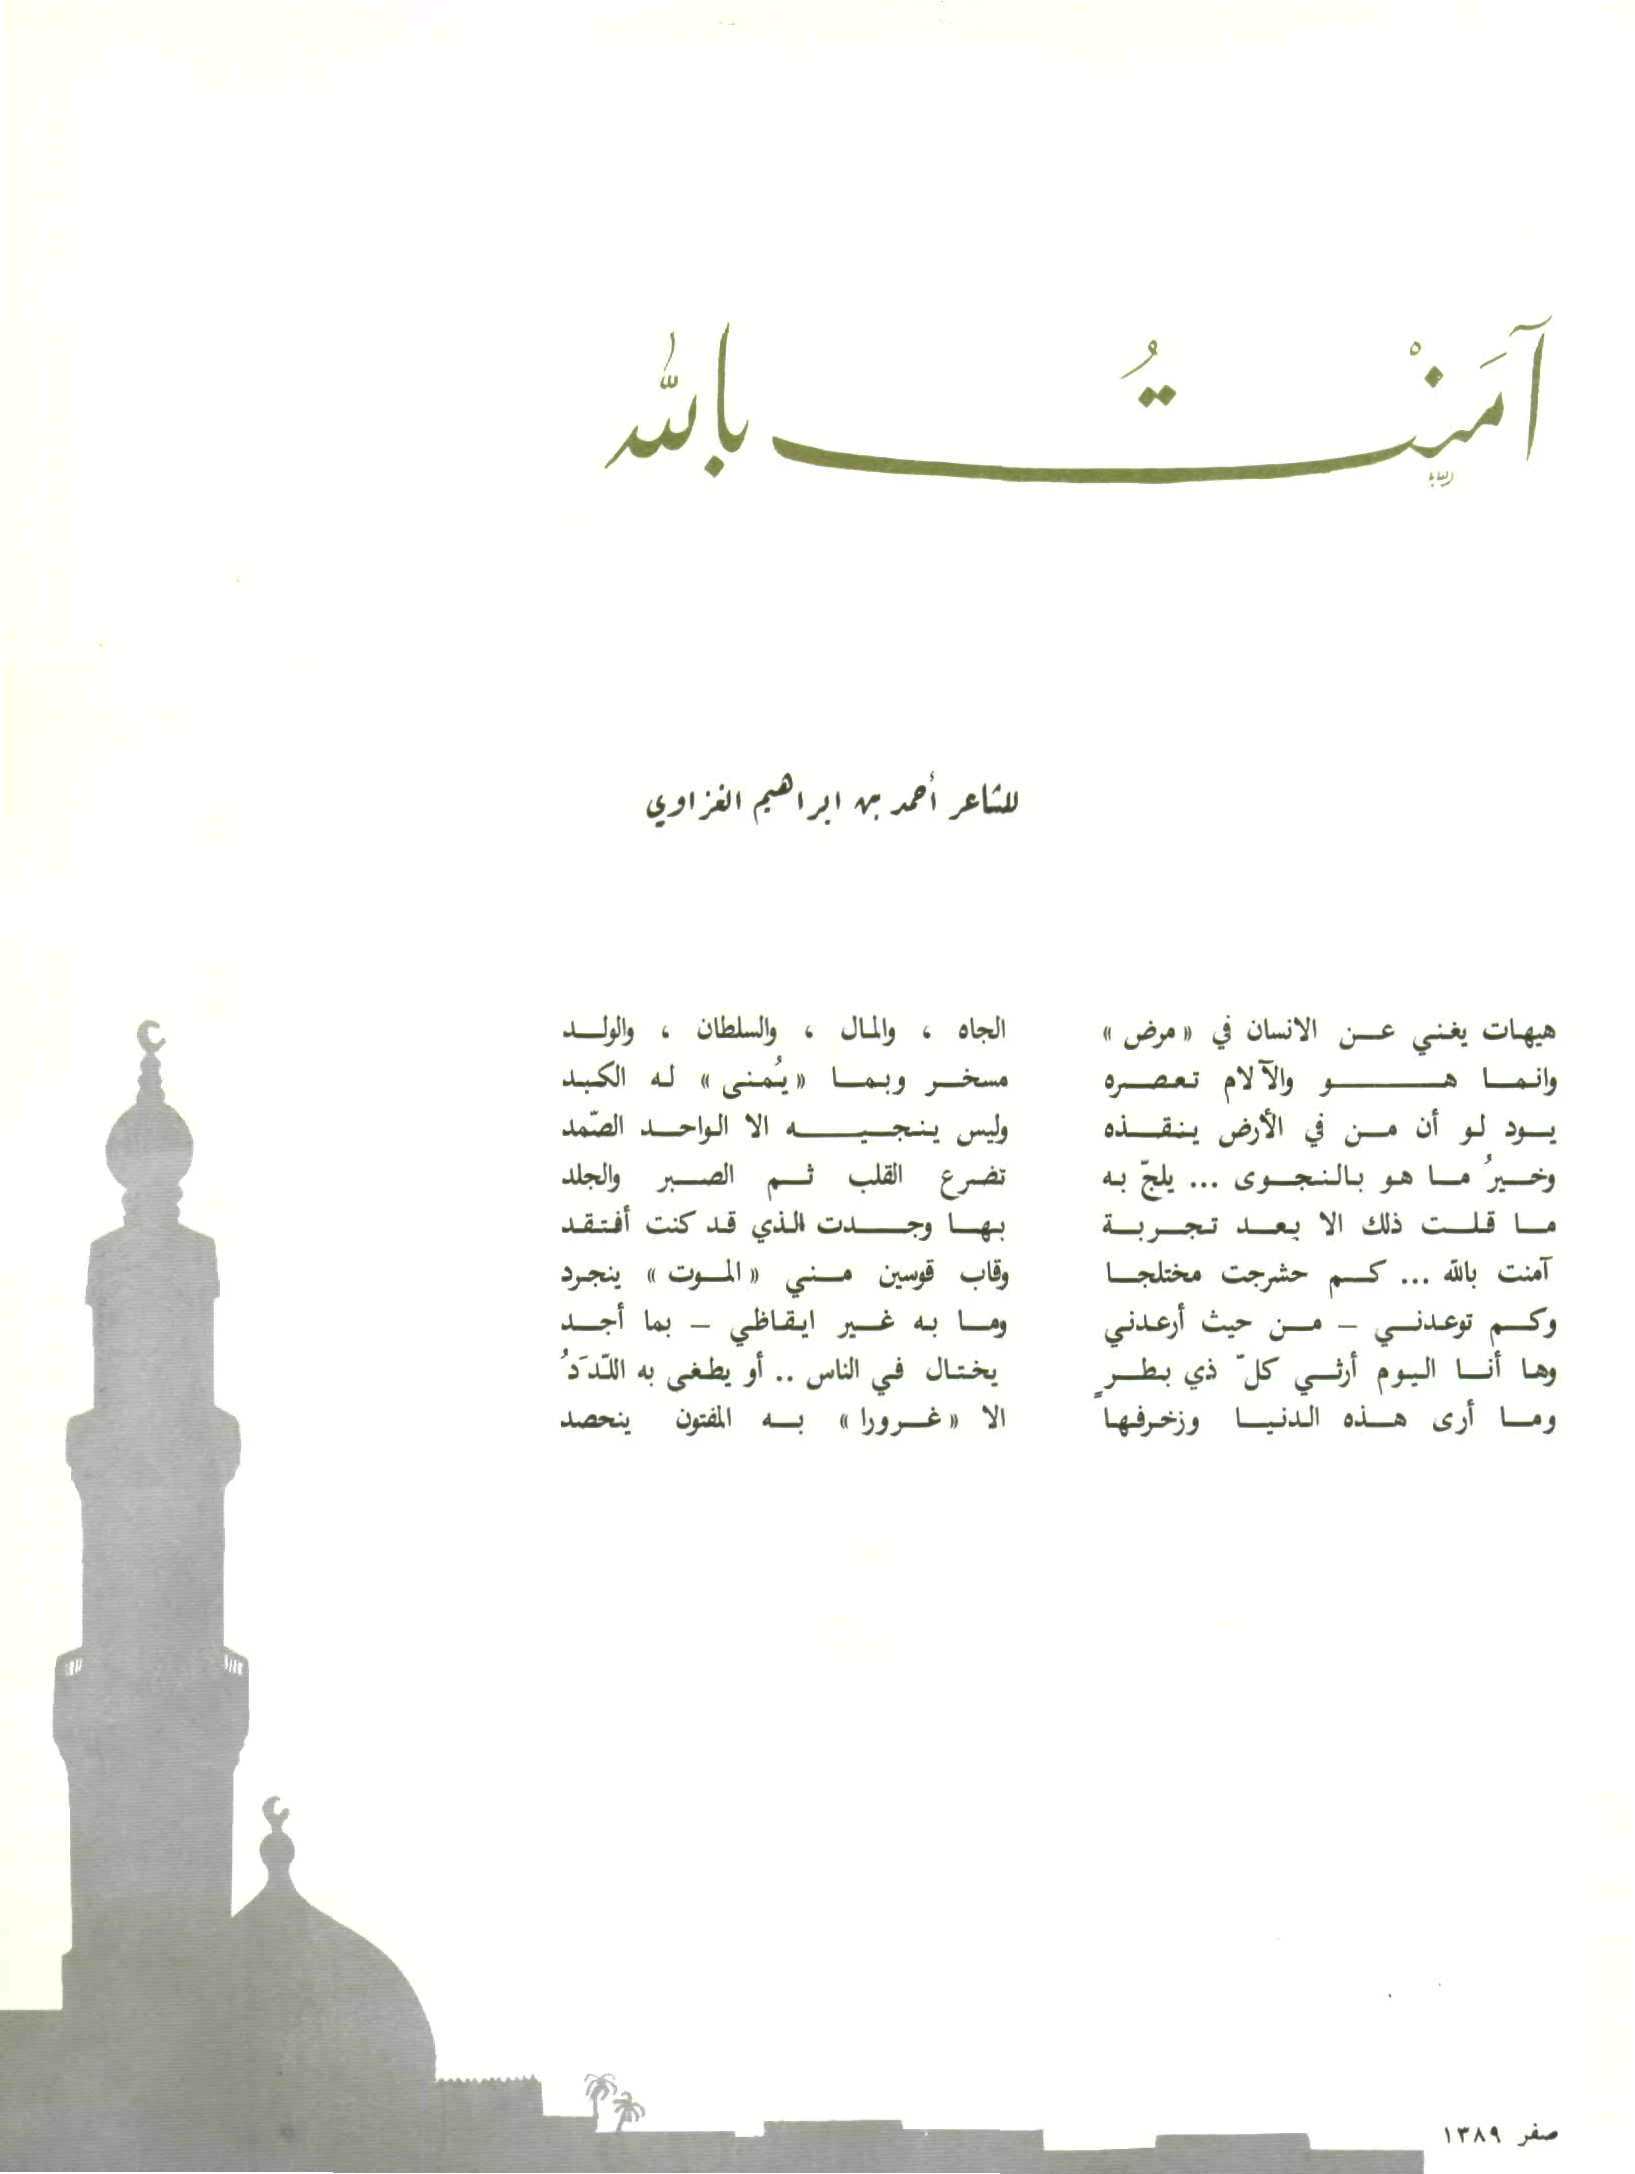 آمَنْتُ بالله
للشاعر أحمد بن ابراهيم الغزاوي
هيهات يغني عن الانسان في « مرض » الجاه ، والمال ، والسلطان ، والولد
وانما هو والآلام تعصره مسخر وبما « يُمنى » له الكبد
يود لو أن من في الأرض ينقذه وليس ينجيه الا الواحد الصّمد
وخيرُ ما هو بالنجوى ... يلجّ به تضرع القلب ثم الصبر والجلد
ما قلت ذلك الا بعد تجربة بها وجدت الذي قد كنت أفتقد
آمنت بالله ... كم حشرجت مختلجا وقاب قوسين مني « الموت » ينجرد
وكم توعدني – من حيث أرعدني وما به غير ايقاظي – بما أجد
وها أنا اليوم أرثي كلّ ذي بطرٍ يختال في الناس .. أو يطغى به اللّدَدُ
وما أرى هذه الدنيا وزخرفها الا « غرورا » به المفتون ينحصد
صفر ١٣٨٩